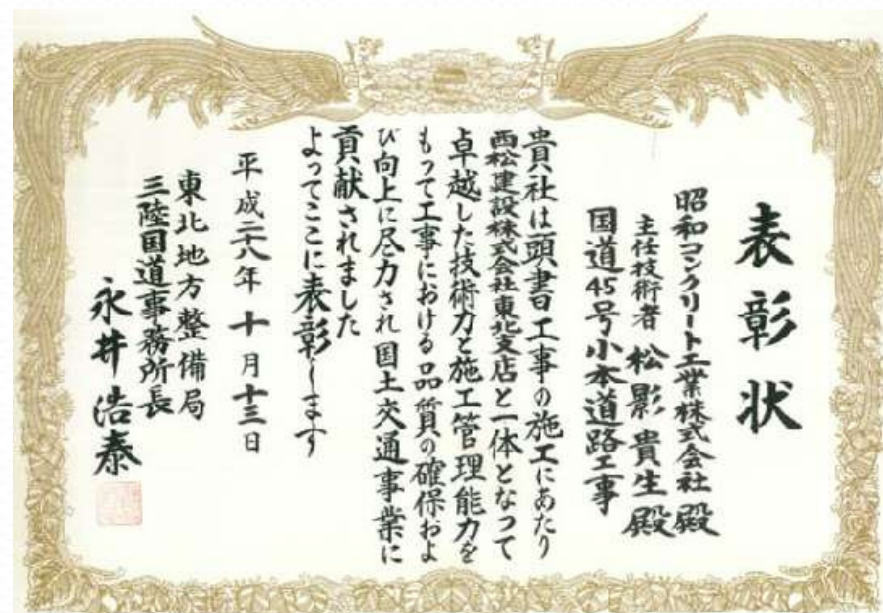 表彰状
昭和コンクリート工業株式会社殿
主任技術者 松影貴生殿
国道45号小本道路工事
貴社は頭書工事の施工にあたり
西松建設株式会社東北支店と一体となって
卓越した技術力と施工管理能力を
もって工事における品質の確保およ
び向上に尽力され国土交通事業に
貢献されました
よってここに表彰します
平成二十八年十月十三日
東北地方整備局
三陸国道事務所長
永井浩泰